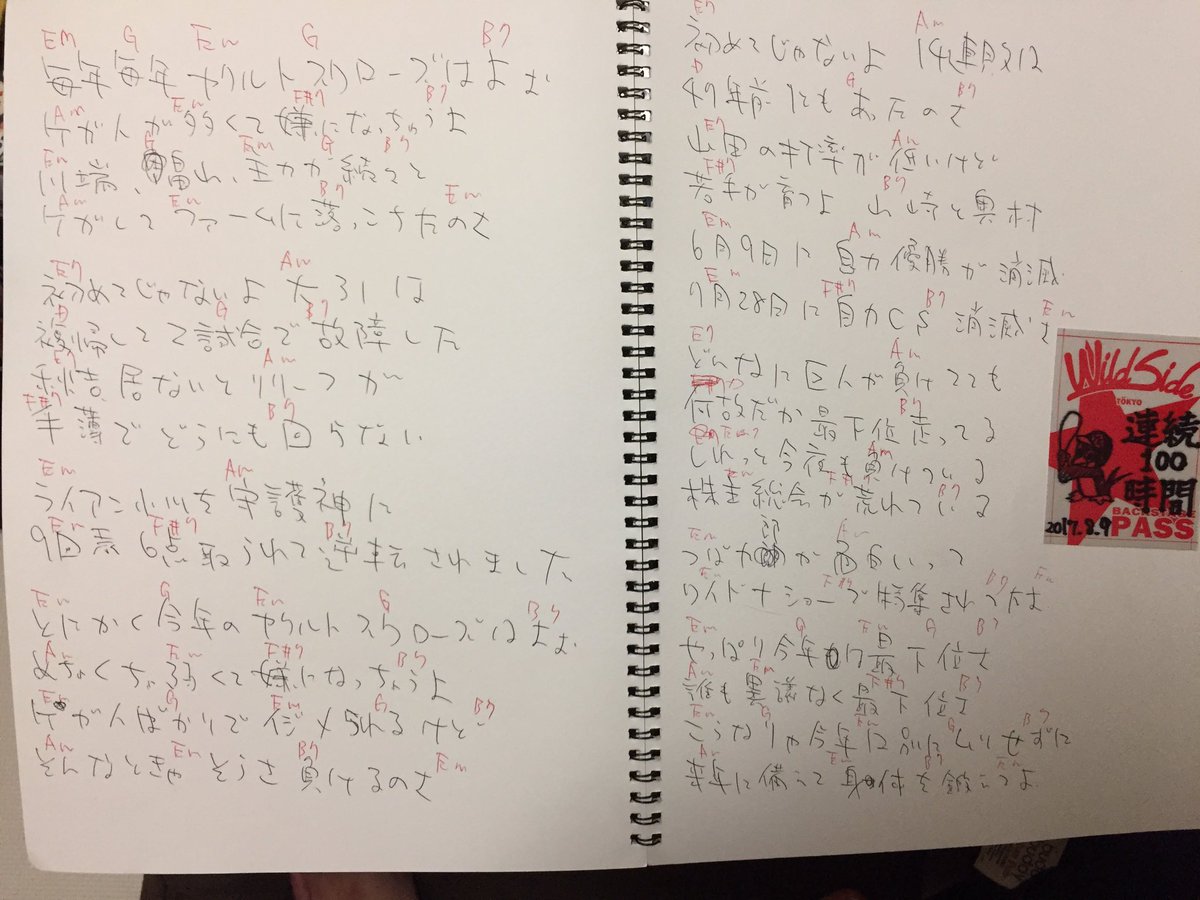 Em G Em G B7
毎年毎年 ヤクルトスワローズはよぉ
Am Em F#7 B7
ケガ人が多くて嫌になっちゃうよ
Em G Em G B7
川端、畠山、主力が続々と
Am Em B7 Em
ケガして ファームに落っこちたのさ
E7 Am
初めてじゃないよ 大引は
D G B7
復帰して2試合で故障した
E7 Am
秋吉 居ないとリリーフが
F#7 B7
手薄でどうにも回らない
Em Am
ライアン小川を守護神に
Em F#7 B7
9回表 6点取られて逆転されました
Em G Em G B7
とにかく今年のヤクルトスワローズはよぉ
Am Em F#7 B7
めちゃくちゃ弱くて嫌になっちゃうよ
Em G Em G B7
ケガ人ばかりでイジメられるけど
Am Em B7 Em
そんなときゃそうさ負けるのさ
E7 Am
初めてじゃないよ 14連敗は
D G B7
47年前にもあったのさ
E7 Am
山田の打率が低いけど
F#7 B7
若手が育つよ 山崎と奥村
Em Am
6月9日に自力優勝が消滅
Em F#7 B7 Em
7月28日に自力CS消滅さ
E7 Am
どんなに巨人が負けてても
D B7
何故だか最下位走ってる
Em Am
しれっと今夜も負けている
Em F#7 B7
株主総会が荒れている
つば九郎が面白いって
Em F#7 B7 Em
ワイドナショーで特集されてたよ
Em G Em G B7
やっぱり今年も最下位さ
Am Em F#7 B7
誰も異議なく最下位さ
Em G Em G B7
こうなりゃ今年は別にムリせずに
Am Em B7 Em
来年に備えて身体を鍛えてよ
Wild Side
TOKYO
連続
100
時間
BACKSTAGE
PASS
2017.8.9